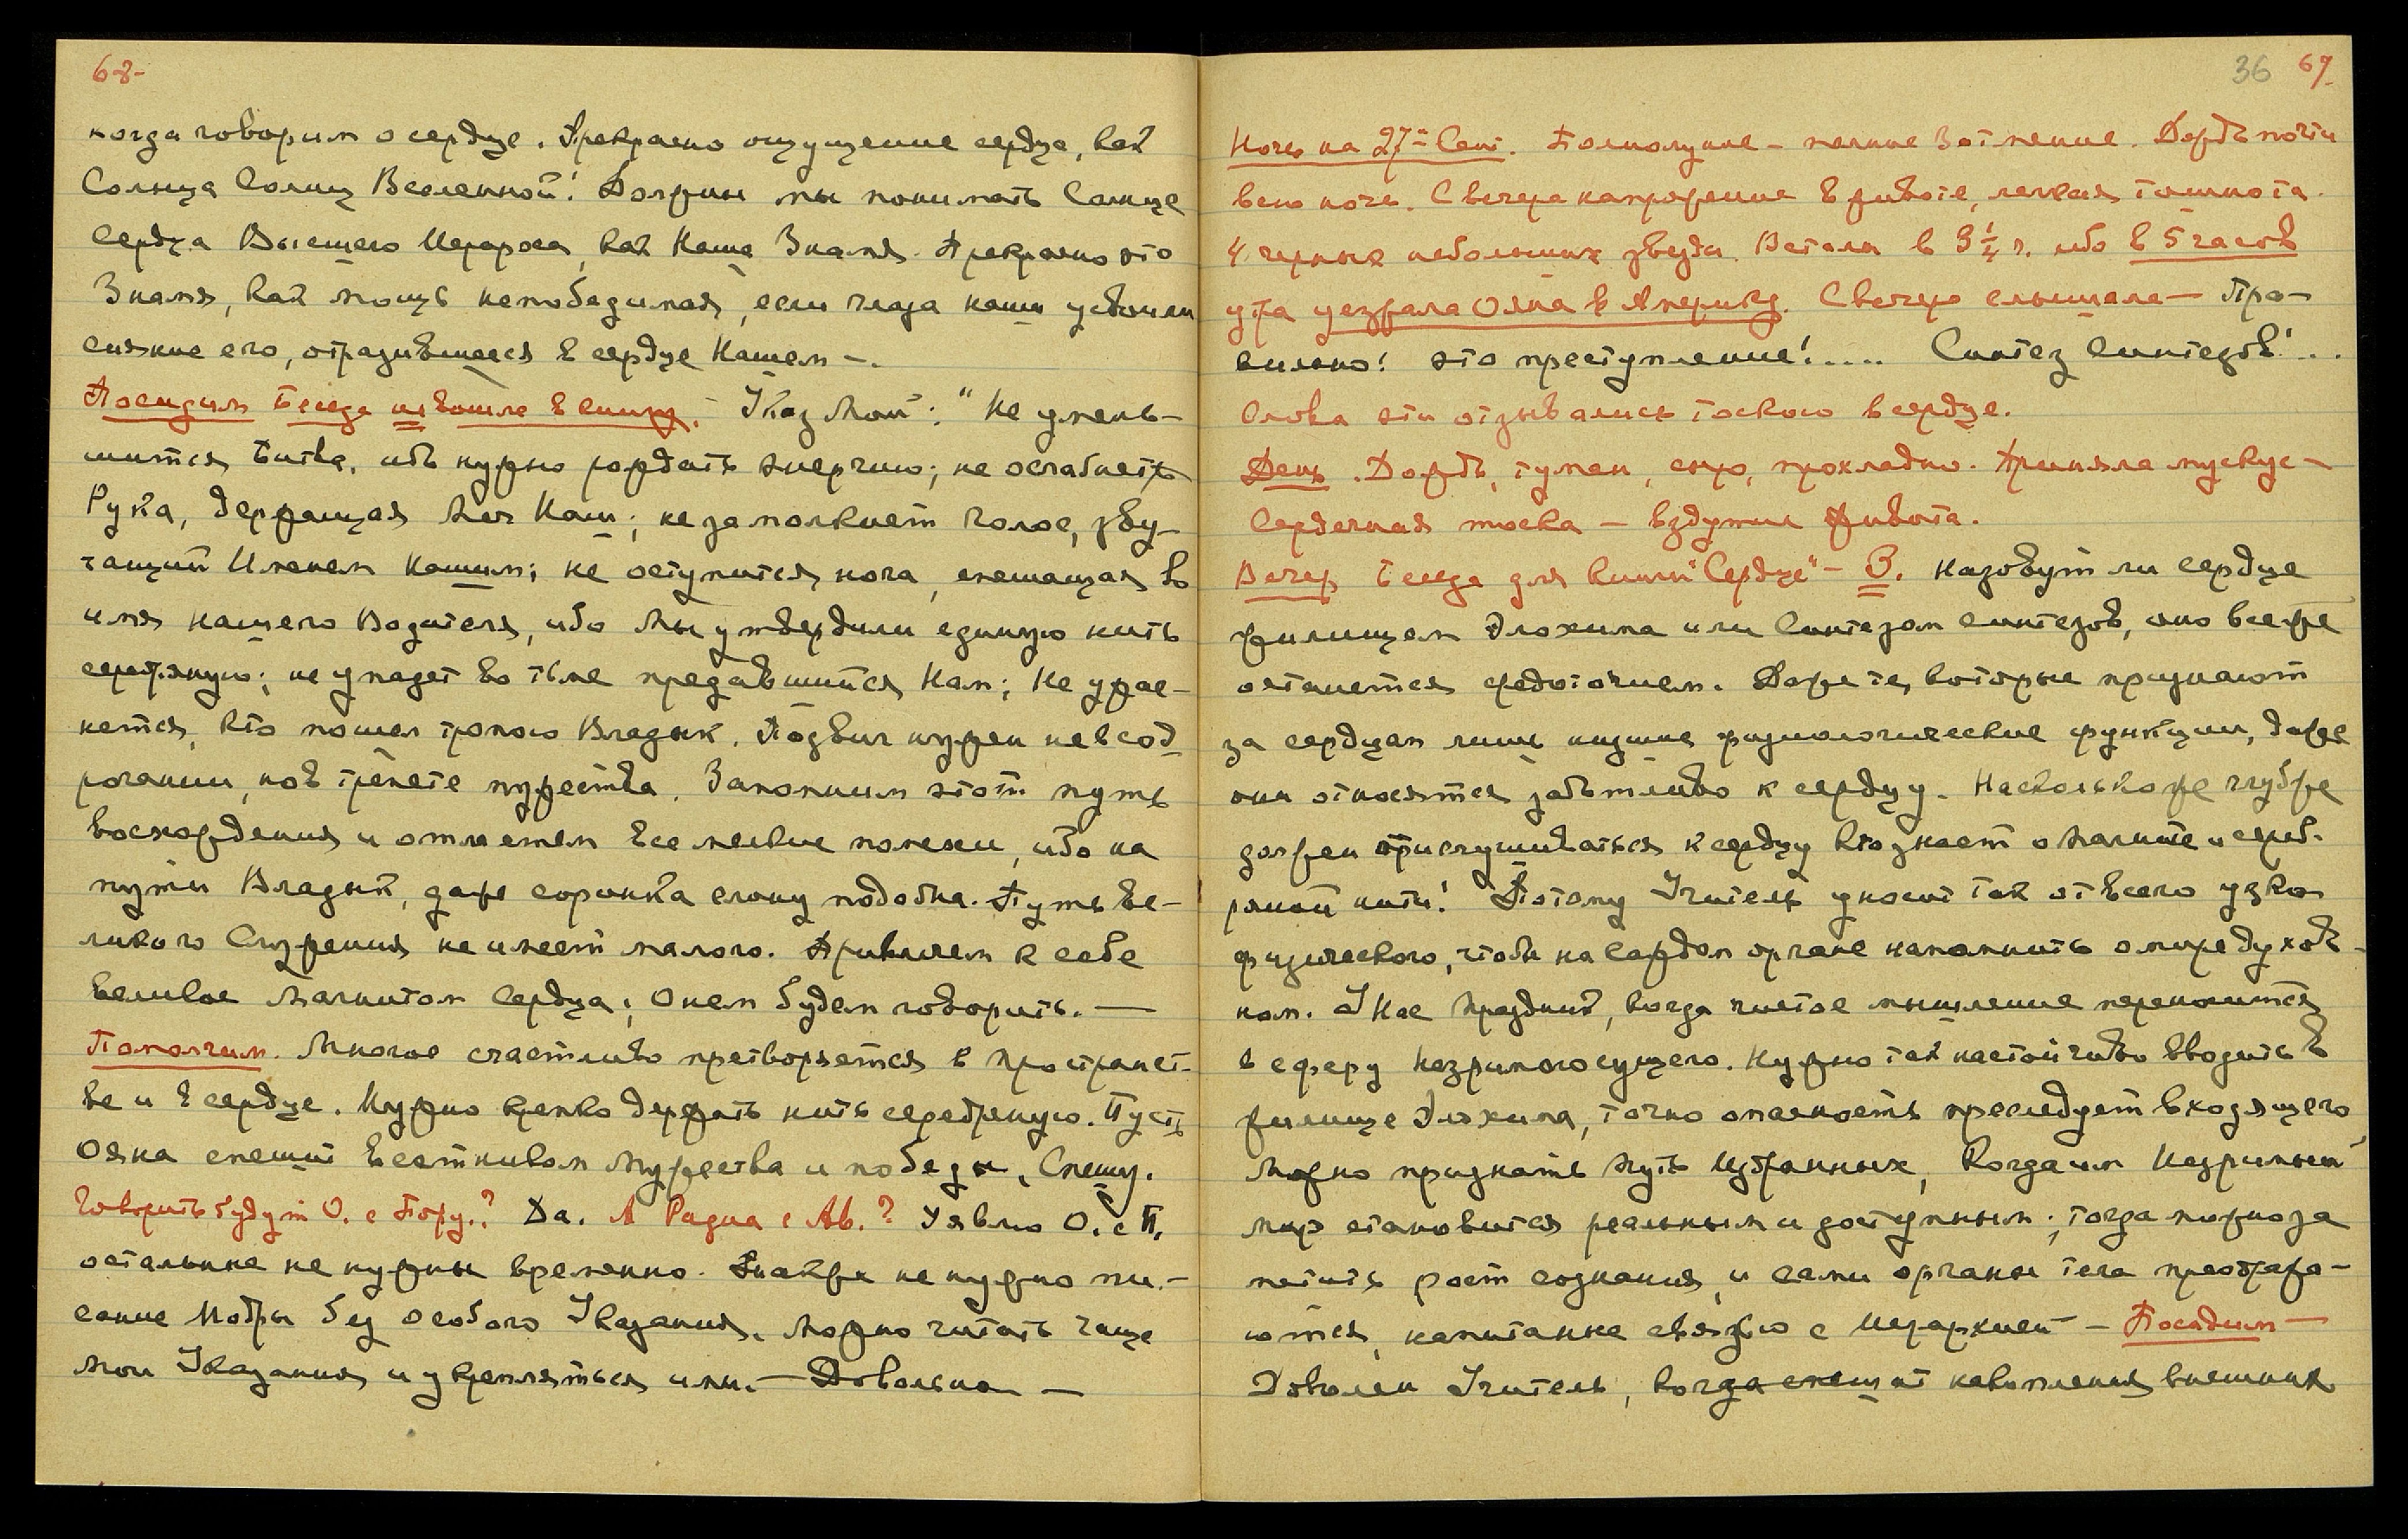 68-
когда говорим о сердце. Прекрасно ощущение сердца, как
Солнца Солнц Вселенной! Должны мы понимать Солнце
Сердца Высшего Иерарха, как Наше Знамя. Прекрасно это
Знамя, как мощь непобедимая, если глаза наши усвоили
сияние его, отразившееся в сердце Нашем –.
Посидим Беседа не вошла в книгу. – Указ Мой: "Не умень-
шится Битва, ибо нужно рождать энергию; не ослабнеть
Рука, держащая Меч Наш; не замолкнет голос, зву-
чащий Именем Нашим; не оступится нога, спешащая во
имя нашего Водителя, ибо Мы утвердили единую нить
серебряную; не упадет во тьме предавшийся Нам; Не ужас-
нется, кто пошел тропою Владык. Подвиг нужен не в сод-
рогании, но в трепете мужества. Запомним этот путь
восхождения и отметем все мелкие помехи, ибо на
пути Владык, даже соринка слону подобна. Путь Ве-
ликого Служения не имеет малого. Привлечем к себе
великое Магнитом Сердца; О нем будем говорить. —
Помолчим. Многое счастливо претворяется в пространст-
ве и в сердце. Нужно крепко держать нить серебряную. Пусть
Ояна спешит вестником Мужества и победы. Спешу.
Говорить будут О. с Пору.? Да. А Радна с Ав.? Уявлю О. с П.
остальные не нужны временно. Также не нужно пи-
сание Модры без особого Указания. Можно читать чаще
Мои Указания и укрепляться ими. – Довольно –
36 69-
Ночь на 27-е Сент. Полнолуние – полное Затмение. Дождь почти
всю ночь. С вечера напряжение в животе, легкая тошнота.
4 черных небольших звезды. Встала в 3 1/4 ч. ибо в 5 часов
утра уезжала Ояна в Америку. С вечера слышала – Про-
сильно! это преступление!.... Синтез синтезов!..
Слова эти отзывались тоскою в сердце.
День. Дождь, туман, сыро, прохладно. Приняла мускус –
Сердечная тоска – вздутие живота.
Вечер Беседа для книги "Сердце" – О. Назовут ли сердце
жилищем Элохима или Синтезом синтезов, оно все же
останется средоточием. Даже те, которые признают
за сердцем лишь низшие физиологические функции, даже
они относятся заботливо к сердцу. Насколько же глубже
должен прислушиваться к сердцу кто знает о магните и сереб-
ряной нити! Потому Учитель уносит так от всего узко
физического, чтобы на каждом органе напомнить о мире духов-
ном. У Нас праздник, когда чистое мышление переносится
в сферу Незримого сущего. Нужно так настойчиво вводить в
жилище Элохима, точно опасность преследует входящего,
Можно признать путь Избранных, когда им Незримый
мир становится реальным и доступным; тогда можно за
метить рост сознания, и сами органы тела преобража-
ются, напитанные связью с Иерархией – Посидим –
Доволен Учитель, когда спешат накопления внешних